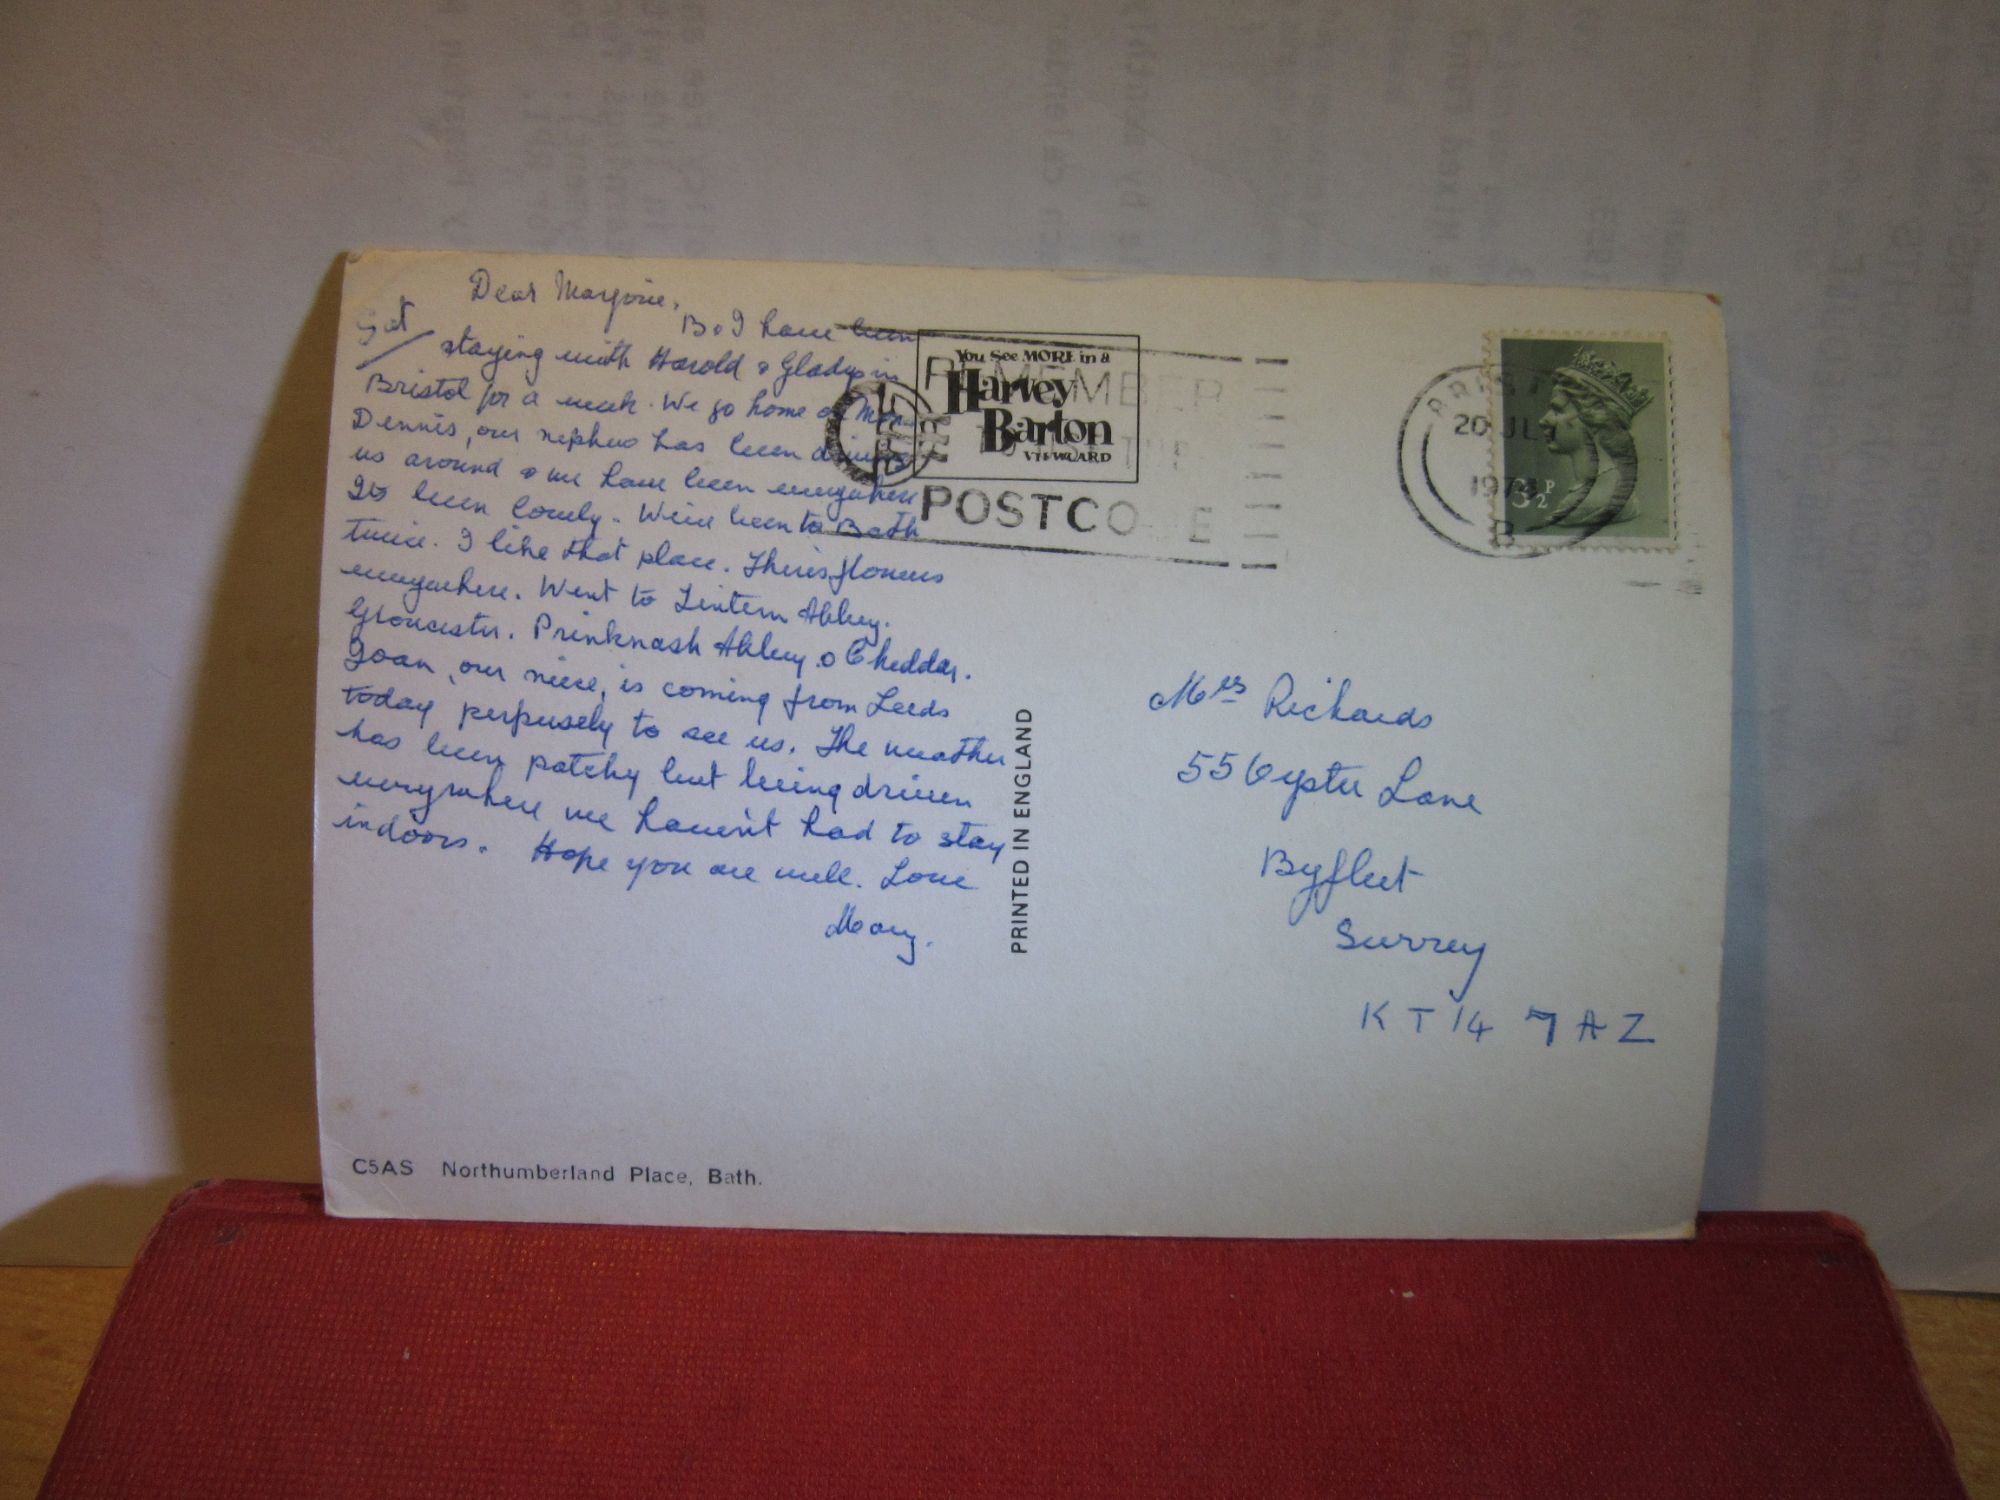 Dear Marjorie,
Sat
B & I have been
staying with Harold & Gladys in
Bristol for a week. We go home on Mon.
Dennis, our nephew has been driving
us around & we have been everywhere
Its been lovely. We've been to Bath
twice. I like that place. There's flowers
everywhere. Went to Tintern Abbey.
Gloucester. Prinknash Abbey & Cheddar.
Joan, our niece, is coming from Leeds
today perpusely to see us. The weather
has been patchy but being driven
everywhere we haven't had to stay
indoors. Hope you are well. Love
Mary.
C5AS Northumberland Place, Bath.
PRINTED IN ENGLAND
You See MORE in a
Harvey
Barton
VIEWCARD
REMEMBER
THE
POSTCODE
BRISTOL
20 JLY
197
B
3½P
Mrs Richards
55 Oyster Lane
Byfleet
Surrey
KT14 7AZ